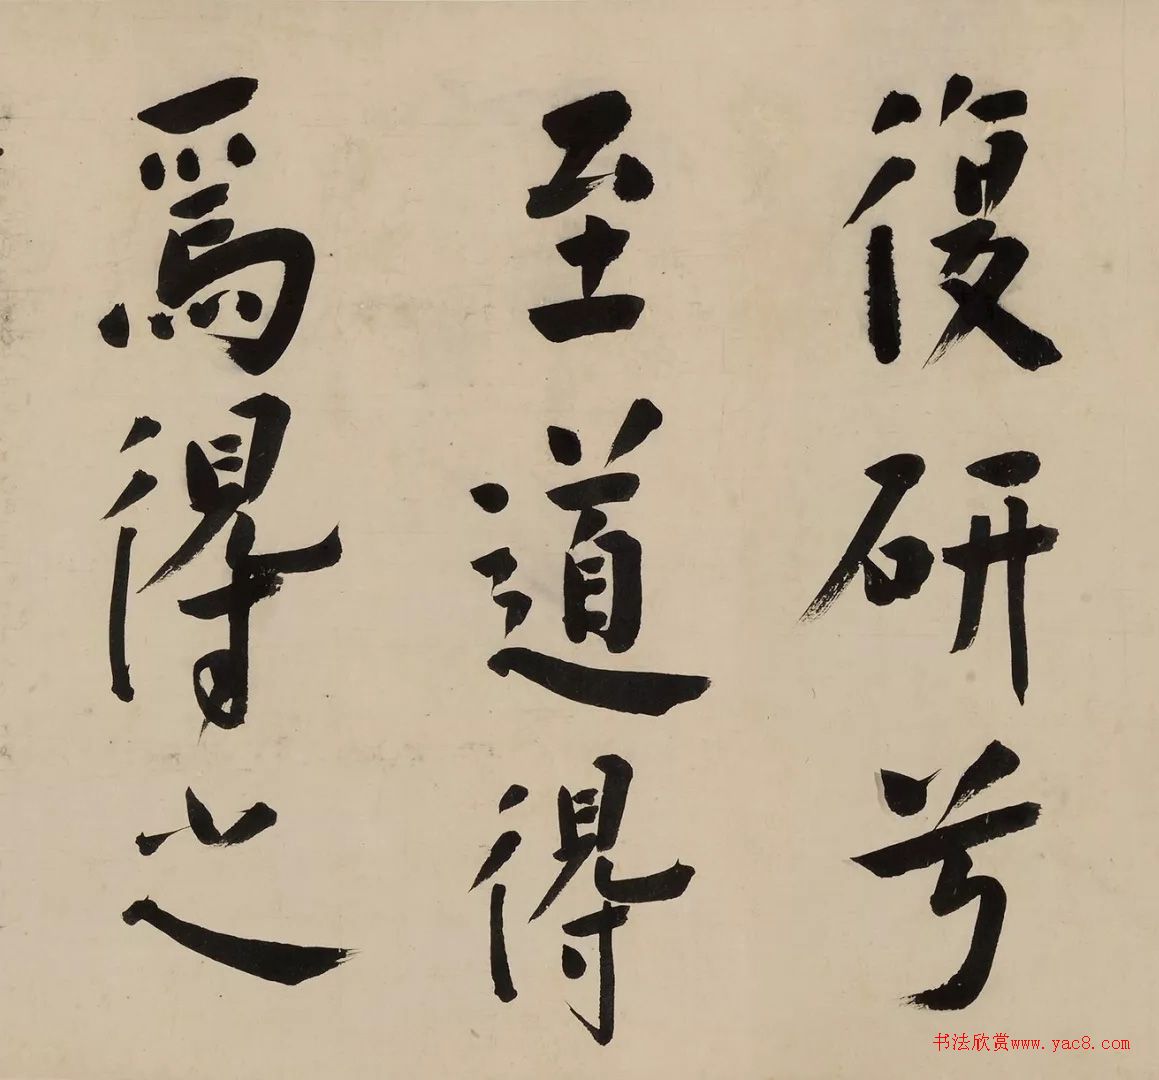 復研兮
至道得
爲得之
书法欣赏www.yac8.com